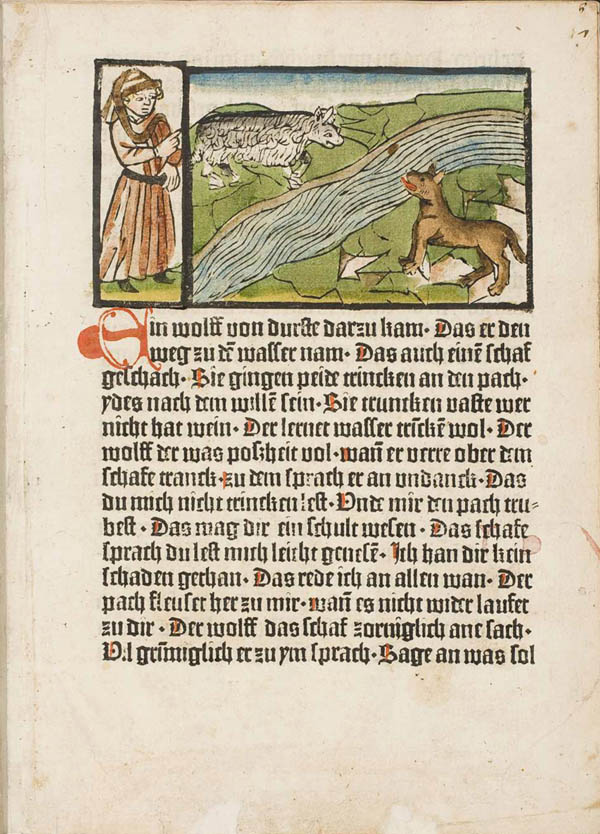 Ein wolff von durste darzu kam· Das er den
weg zu dē wasser nam· Das auch einē schaf
geschach· Sie gingen peide trincken an den pach·
ydes nach dem willē sein· Sie truncken vaste wer
nicht hat wein· Der lernet wasser trīcken wol· Der
wolff der was poszheit vol· wañ er verre ober dem
schafe tranck· zu dem sprach er an undanck· Das
du mich nicht trincken lest· Unde mir den pach tru⸗
best· Das mag dir ein schult wesen· Das schafe
sprach du lest mich leicht genesē· Ich han dir kein
schaden gethan· Das rede ich an allen wan· Der
pach fleuset her zu mir· wañ es nicht wider laufet
zu dir· Der wolff das schaf zorniglich ane sach·
Vil grīmiglich er zu ym sprach· Sage an was sol